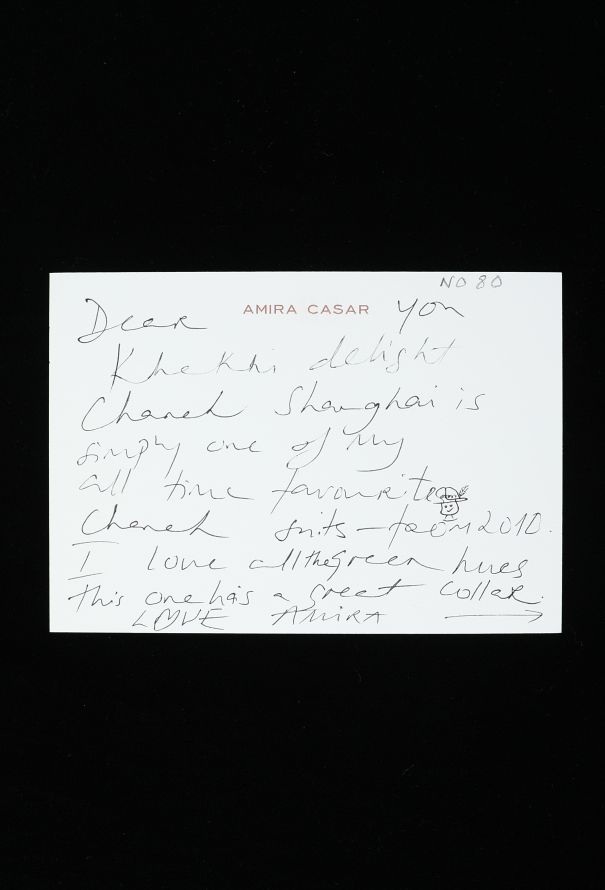 NO 80
AMIRA CASAR
Dear you
Khakhi delight
Chanel Shanghai is
simply one of my
all time favourite
Chanel suits - from 2010.
I love all the green hues
this one has a great collar.
LOVE AMIRA